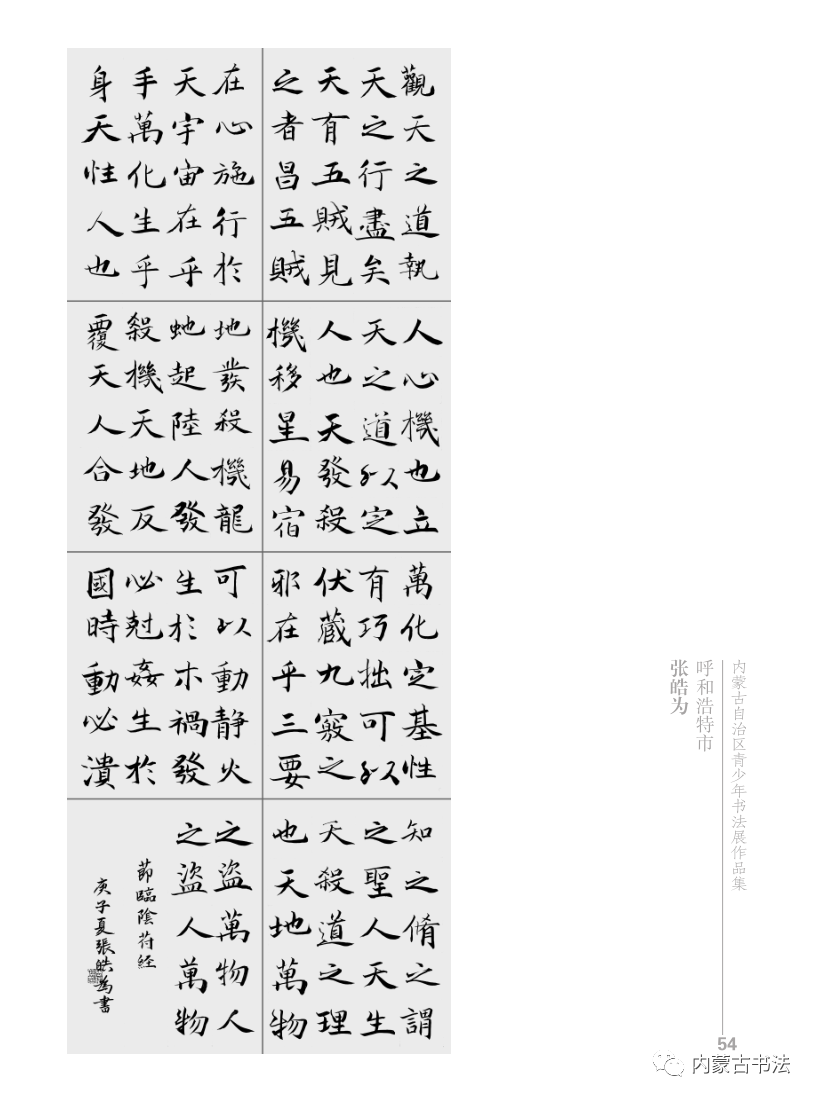 觀天之道執
天之行盡矣
天有五賊見
之者昌五賊
在心施行於
天宇宙在乎
手萬化生乎
身天性人也
人心機也立
天之道以定
人也天發殺
機移星易宿
地發殺機龍
虵起陸人發
殺機天地反
覆天人合發
萬化定基性
有巧拙可以
伏藏九竅之
邪在乎三要
可以動靜火
生於木禍發
必尅姦生於
國時動必潰
知之脩之謂
之聖人天生
天殺道之理
也天地萬物
之盜萬物人
之盜人萬物
節臨陰符経
庚子夏張皓為書
内蒙古自治区青少年书法展作品集
呼和浩特市
张皓为
54
内蒙古书法